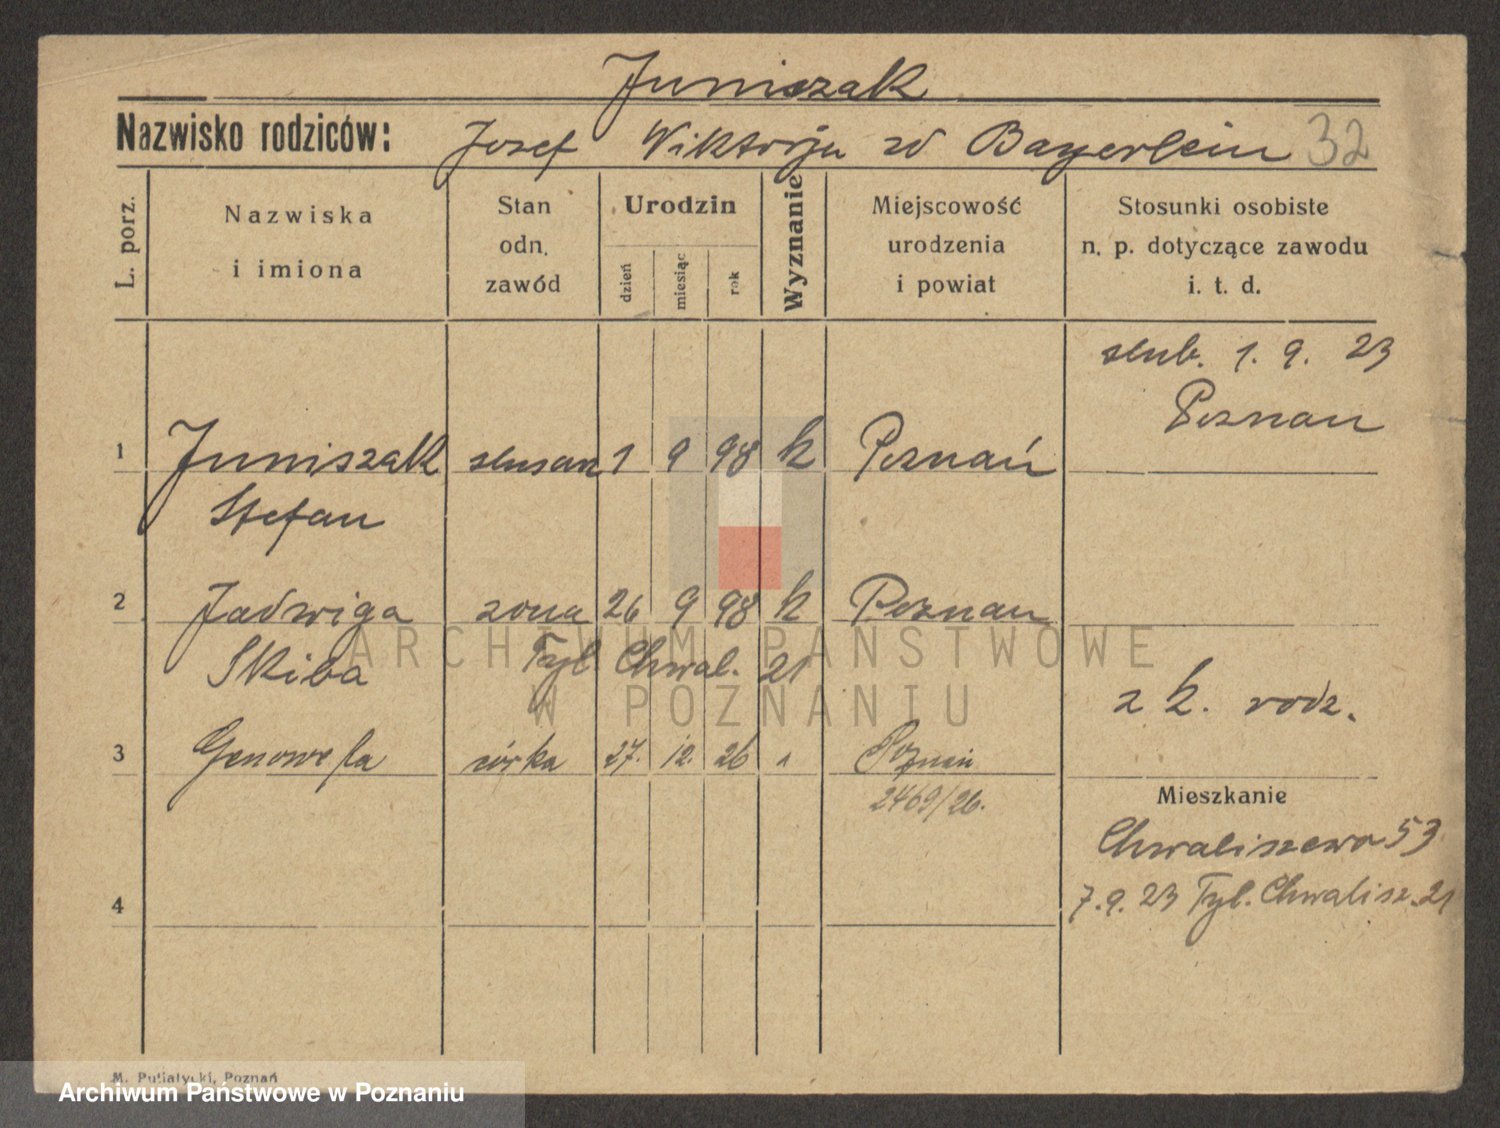 Juniszak
Nazwisko rodziców: Josef Wiktorja zd Bayerlein 32
L. porz.
Nazwiska
i imiona
Stan
odn.
zawód
Urodzin
dzień
miesiąc
rok
Wyznanie
Miejscowość
urodzenia
i powiat
Stosunki osobiste
n. p. dotyczące zawodu
i. t. d.
slub. 1. 9. 23
Poznan
1 Juniszak slusarz 1 9 98 k Poznań
Stefan
2 Jadwiga zona 26 9 98 k Poznan
Skiba Tyl Chwal. 21
z k. rodz.
3 Genowefa córka 27. 12. 26 " Poznań
2469/26.
Mieszkanie
Chwaliszewo 53
7.9.23 Tyl. Chwalisz. 21
4
M. Putiatycki, Poznań
ARCHIWUM PAŃSTWOWE
W POZNANIU
Archiwum Państwowe w Poznaniu